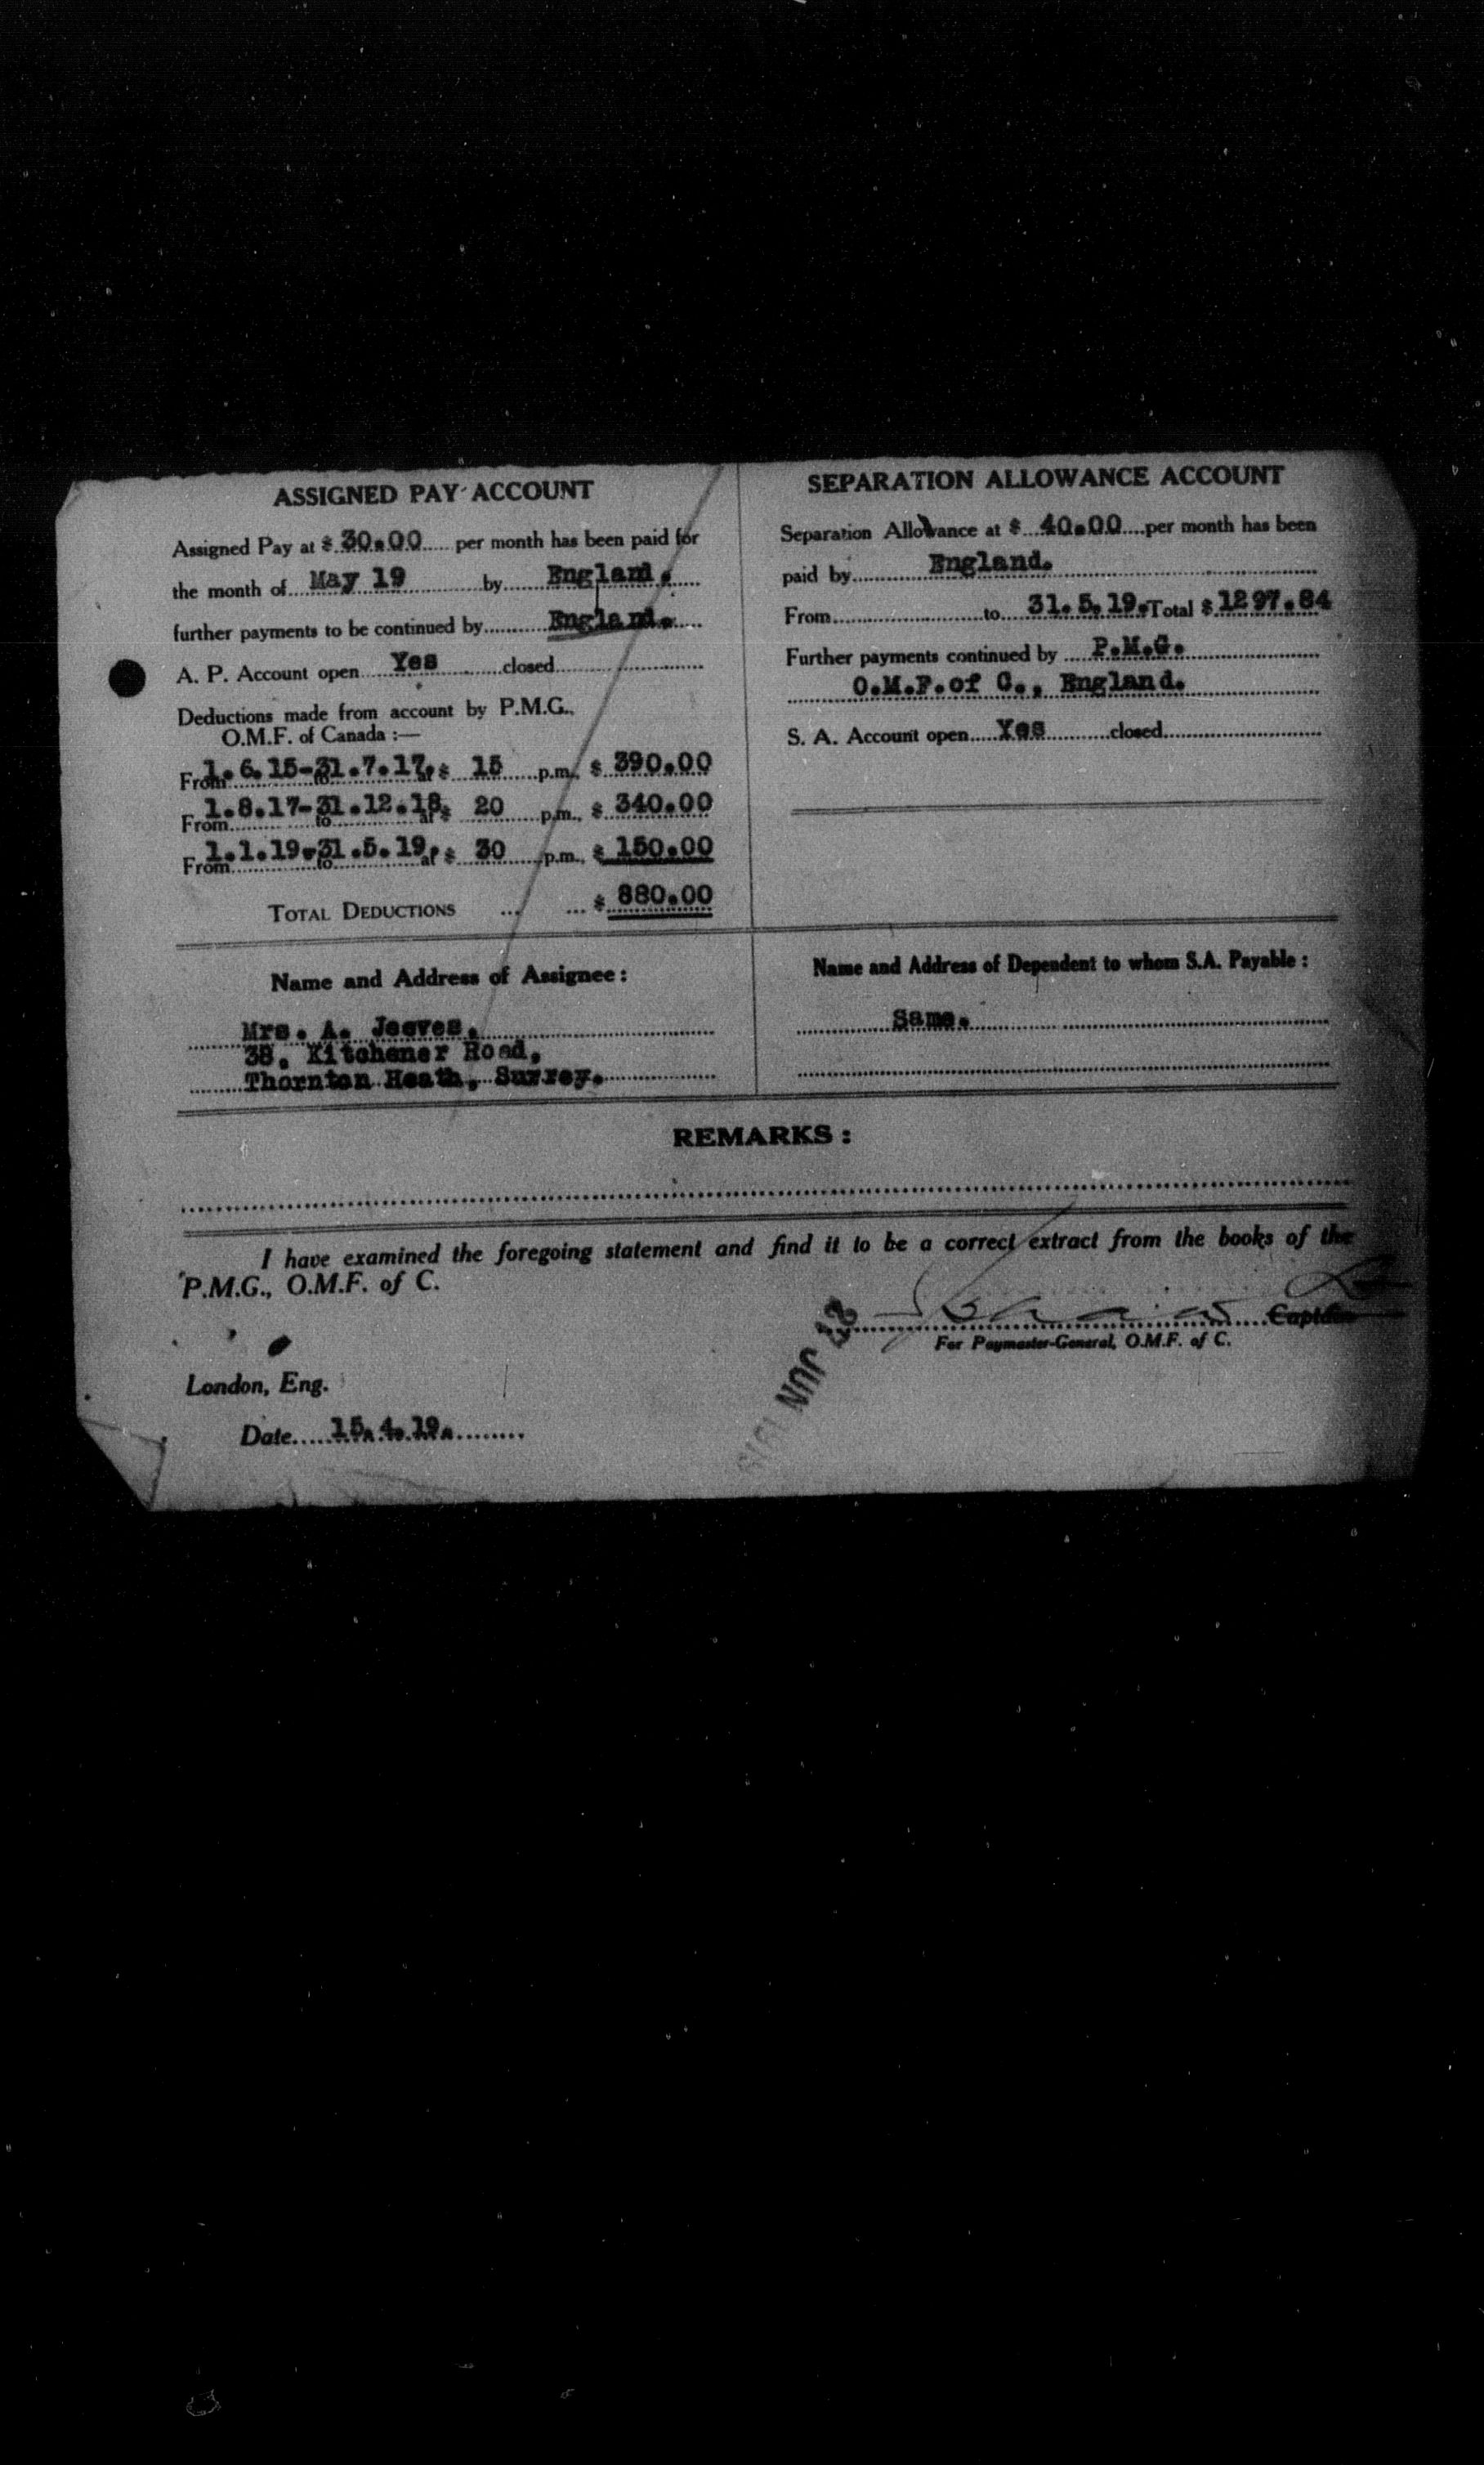 ASSIGNED PAY ACCOUNT
Assigned Pay at $ 30.00 per month has been paid for
the month of May 19 by England.
further payments to be continued by England.
A. P. Account open Yes closed
Deductions made from account by P.M.G.,
O.M.F. of Canada :—
From 1.6.15- to 31.7.17. at $ 15 p.m., $ 390.00
From 1.8.17- to 31.12.18. at $ 20 p.m., $ 340.00
From 1.1.19- to 31.5.19. at $ 30 p.m., $ 150.00
TOTAL DEDUCTIONS ... ... $ 880.00
Name and Address of Assignee :
Mrs. A. Jeeves,
38, Kitchener Road,
Thornton Heath, Surrey.
SEPARATION ALLOWANCE ACCOUNT
Separation Allowance at $ 40.00 per month has been
paid by England.
From to 31.5.19. Total $ 1297.84
Further payments continued by P.M.G.
O.M.F. of C., England.
S. A. Account open Yes closed
Name and Address of Dependent to whom S.A. Payable :
Same.
REMARKS :
I have examined the foregoing statement and find it to be a correct extract from the books of the
P.M.G., O.M.F. of C.
Captain
For Paymaster-General, O.M.F. of C.
JUN 1919
London, Eng.
Date 15.4.19.